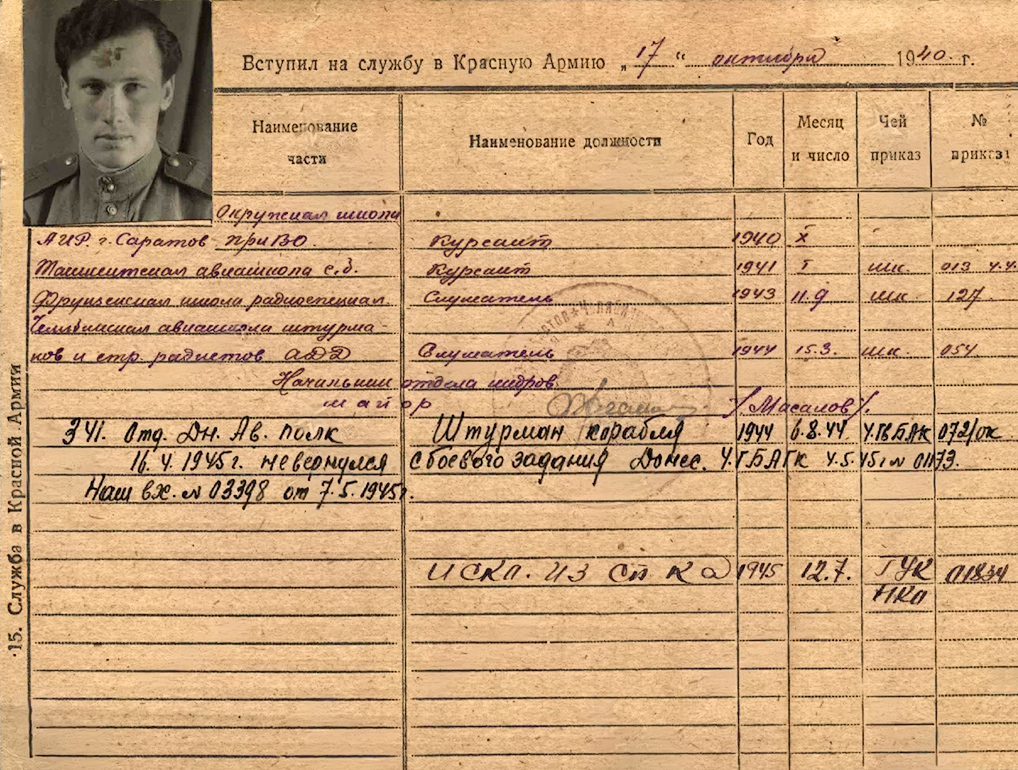 Вступил на службу в Красную Армию „17“ октября 1940 г.
Наименование части Наименование должности Год Месяц и число Чей приказ № приказа
Окружная школа
АИР. г. Саратов ПриВО. Курсант 1940 X
Ташкентская авиашкола с.б. Курсант 1941 I шк. 013 4.4.
Фрунзенская школа радиоспециал Слушатель 1943 11.9 шк. 127.
Челябинская авиашкола штурма-
нов и стр. радистов АДД Слушатель 1944 15.3. шк. 054
Начальник отдела кадров.
майор /Масалов/.
341. Отд. Дн. Ав. полк Штурман корабля 1944 6.8.44 4.ГВ.БАК 072/ок
16.4.1945г. не вернулся с боевого задания Донес. 4.ГБАГК 4.5.45г № 01173.
Наш вх. № 03398 от 7.5.1945г.
ИСКЛ. ИЗ СП КА 1945 12.7. ГУК 01834
НКО
15. Служба в Красной Армии